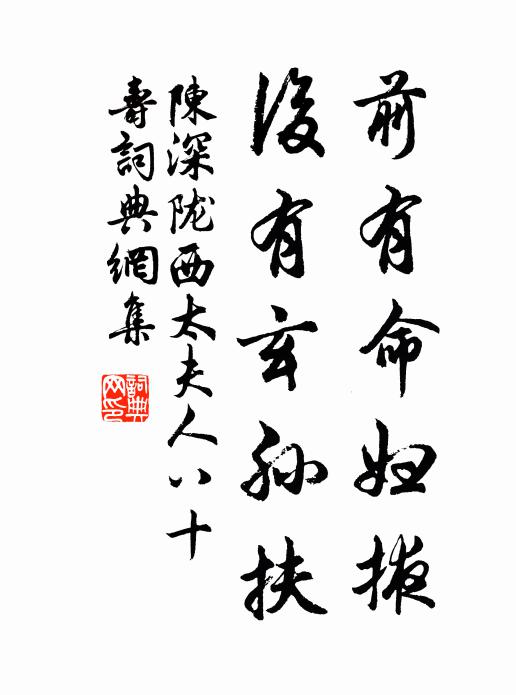 前有命妇掖
後有玄孙扶
陳深陇西太夫人八十
壽詞典網集
詞典網印